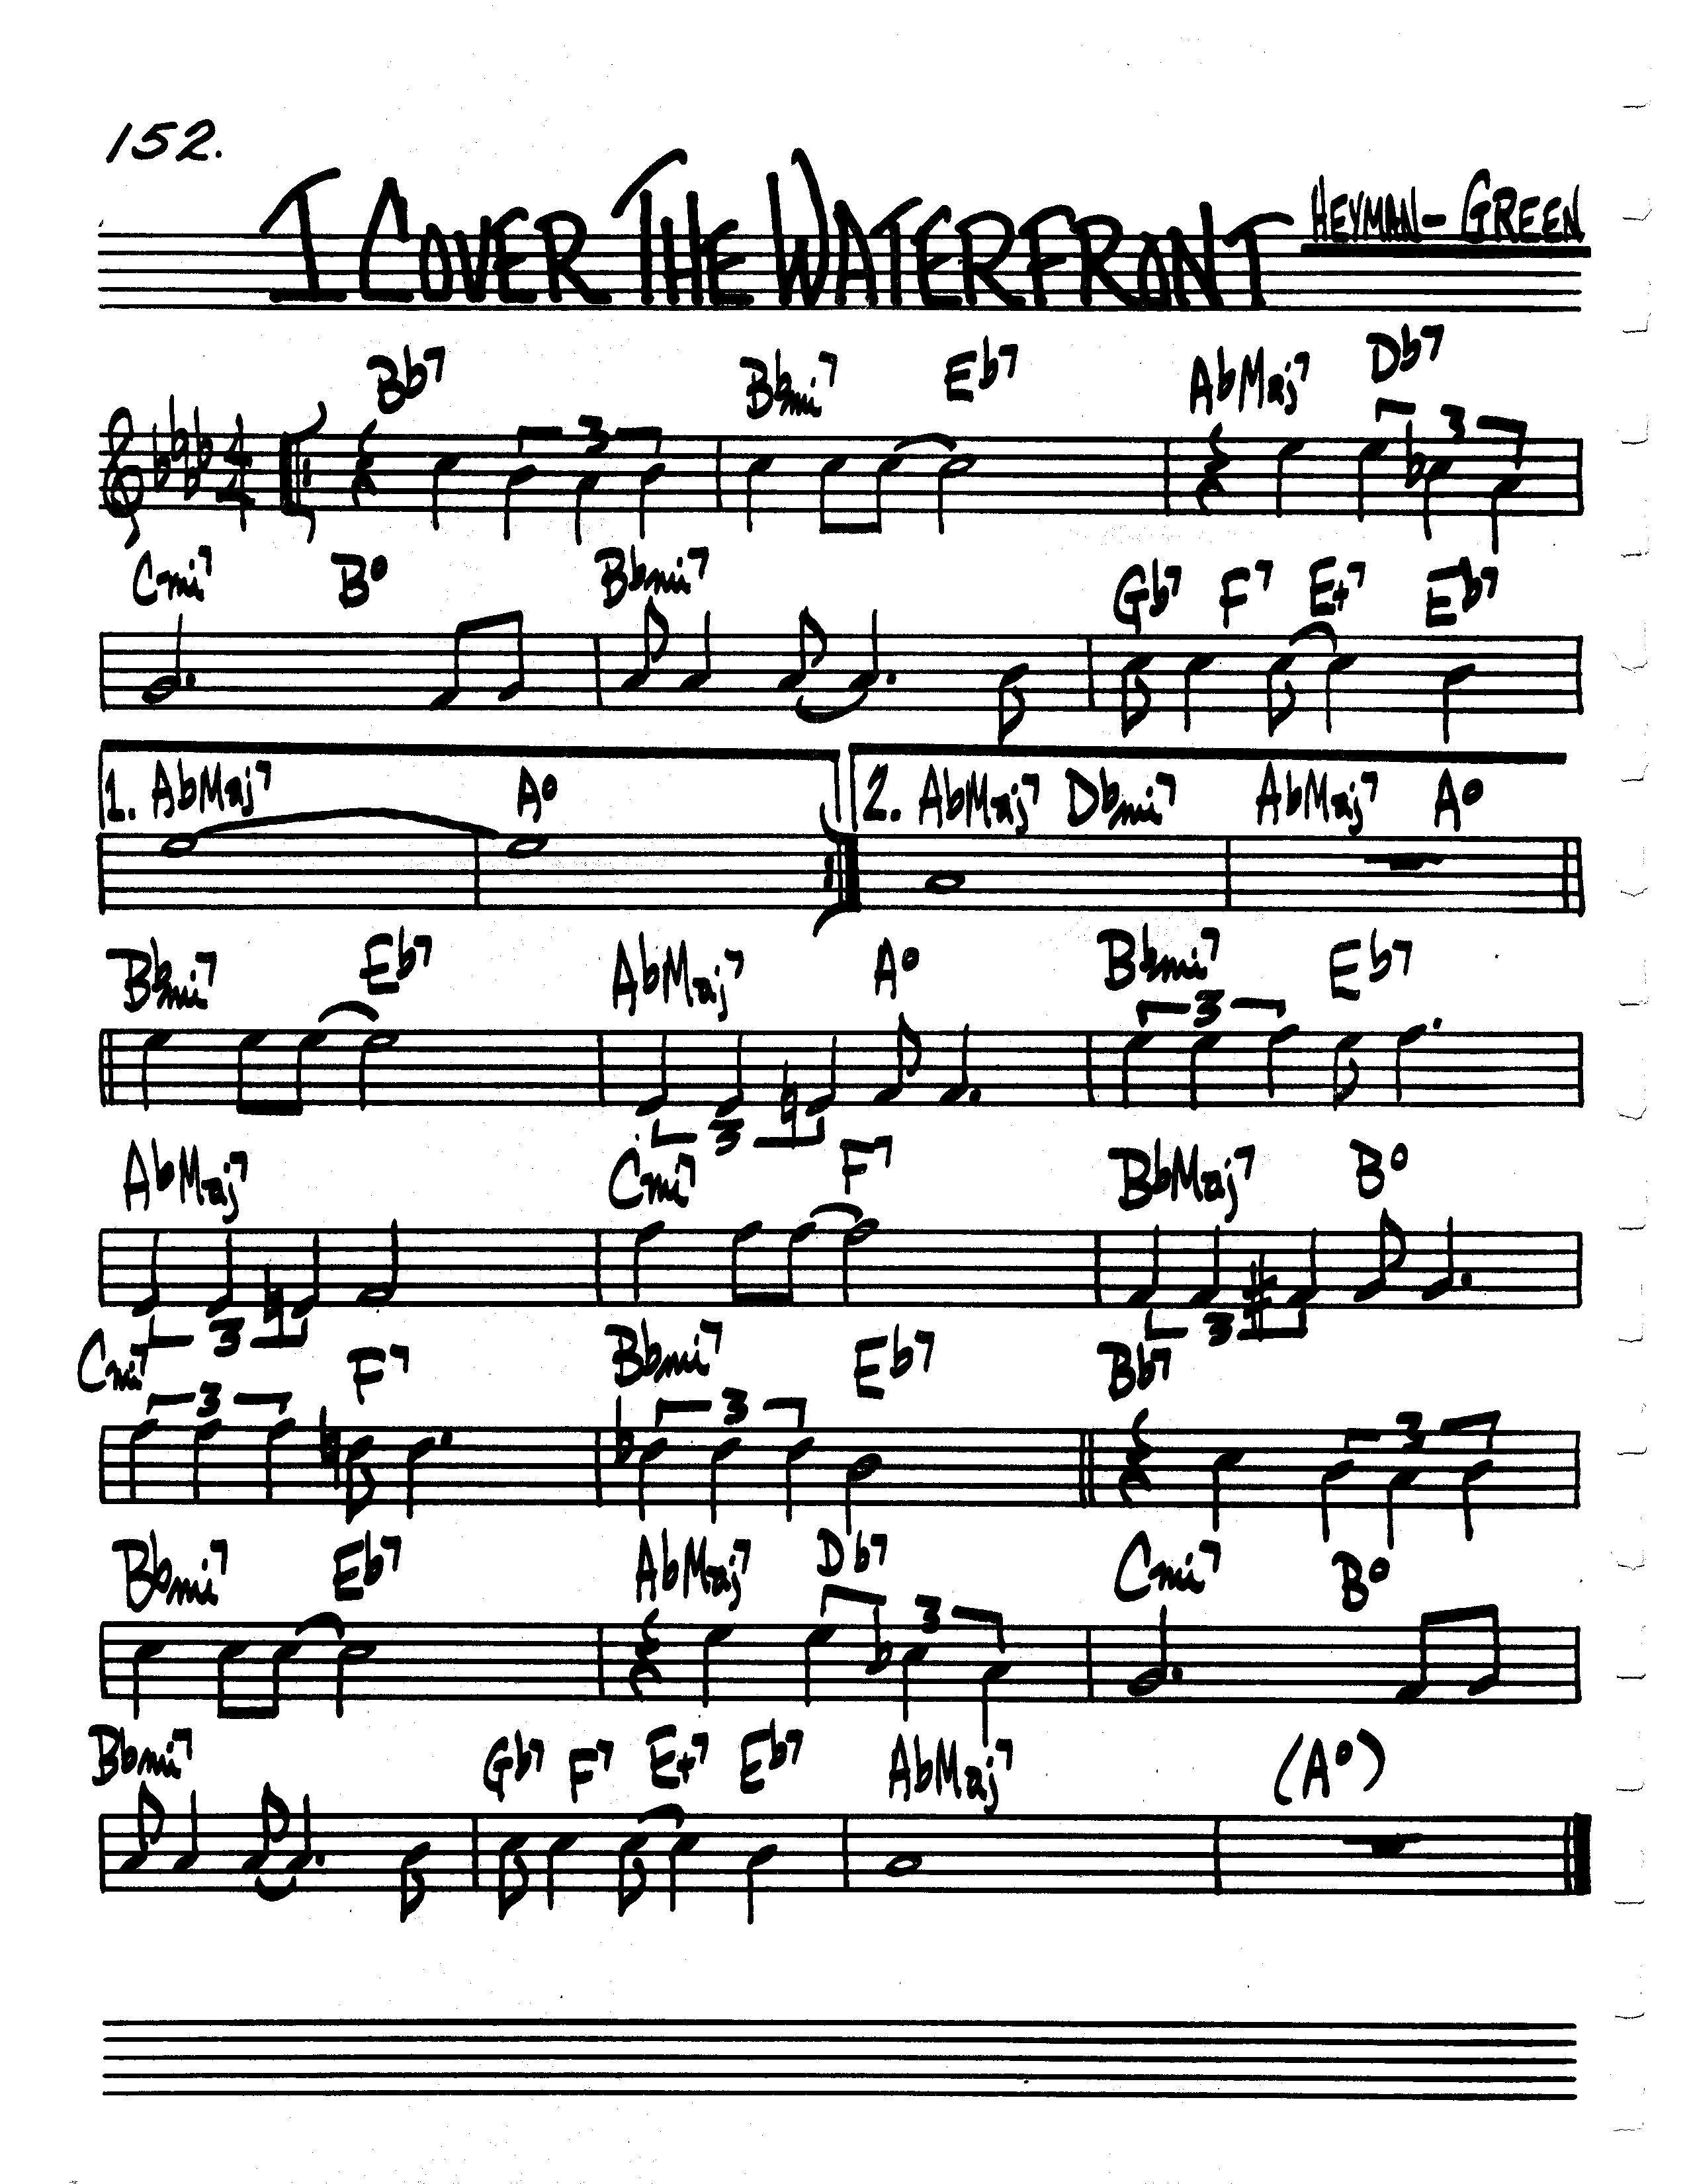 152.
I COVER THE WATERFRONT HEYMAN-GREEN
Bb7 Bbmi7 Eb7 AbMaj7 Db7
4/4 3 3
Cmi7 Bo Bbmi7 Gb7 F7 E+7 Eb7
1. AbMaj7 Ao 2. AbMaj7 Dbmi7 AbMaj7 Ao
Bbmi7 Eb7 AbMaj7 Ao Bbmi7 Eb7
3
3
AbMaj7 Cmi7 F7 BbMaj7 Bo
3 3
Cmi7 F7 Bbmi7 Eb7 Bb7
3 3 3
Bbmi7 Eb7 AbMaj7 Db7 Cmi7 Bo
3
Bbmi7 Gb7 F7 E+7 Eb7 AbMaj7 (Ao)